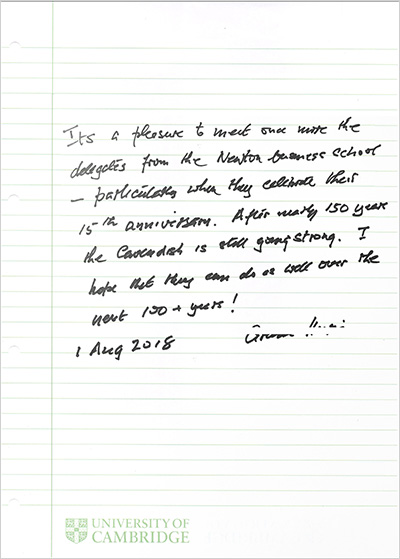 Its a pleasure to meet once more the
delegates from the Newton business school
– particularly when they celebrate their
15th anniversary. After nearly 150 years
the Cavendish is still going strong. I
hope that they can do as well over the
next 100+ years!
1 Aug 2018
UNIVERSITY OF
CAMBRIDGE